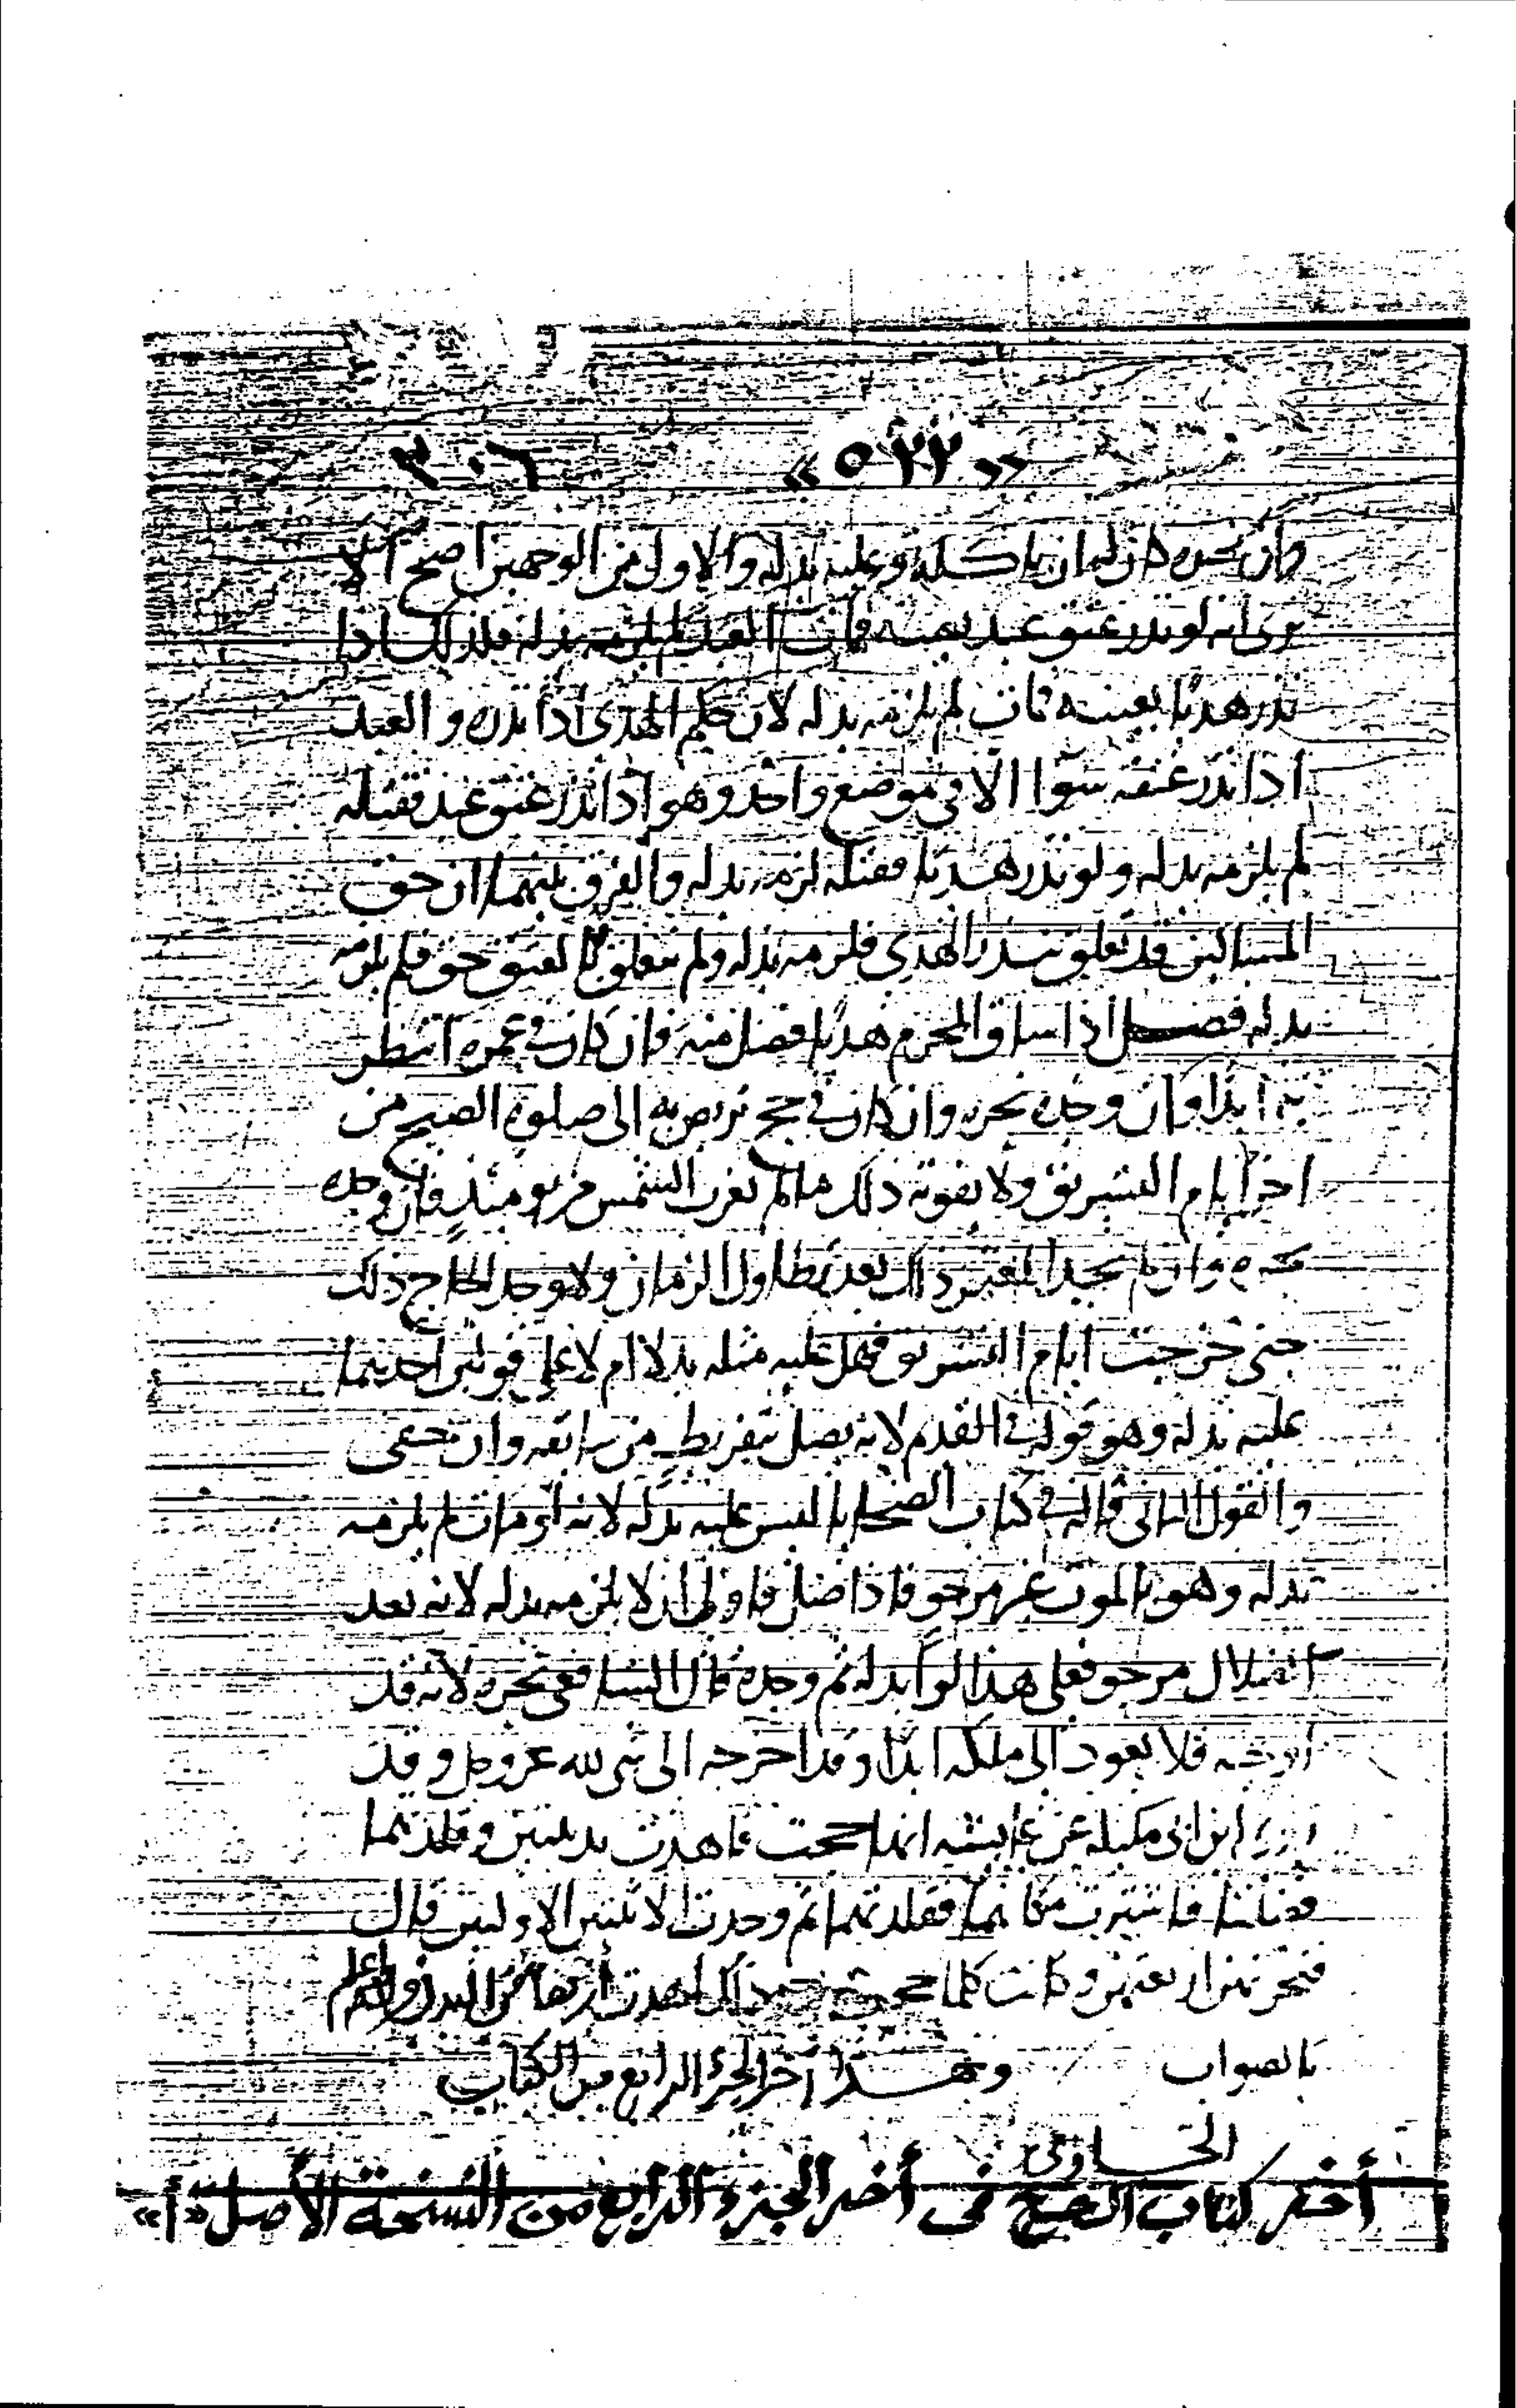 «٥٢٢» ٣٠٦
وان نحره كان له ان ياكله وعليه بدله والاول من الوجهين اصح الا
يرى انه لو نذر عتق عبد بعينه فمات العبد لم يلزمه بدله فكذلك اذا
نذر هديا بعينه فمات لم يلزمه بدله لان حكم الهدى اذا نذره والعبد
اذا نذر عتقه سوآ الا في موضع واحد وهو اذا نذر عتق عبد فقتله
لم يلزمه بدله ولو نذر هديا فقتله لزمه بدله والفرق بينهما ان حق
المساكين قد تعلق بنذر الهدى فلزمه بدله ولم يتعلق بالعتق حق فلم يلزمه
بدله فصل اذا ساق المحرم هديا فضل منه فان كان في عمرة انتظر
به ابدا وان وجده نحره وان كان في حج تربص به الى صلوة الصبح من
اخر ايام التشريق ولا يفوته ذلك مالم تغرب الشمس من يومئذ فان وجده
نحره وان لم يجد المعتمر ذلك بعد تطاول الزمان ولا وجد الحاج ذلك
حتى خرجت ايام التشريق فهل عليه مثله بدلا ام لا على قولين احديهما
عليه بدله وهو قوله في القديم لانه يضل بتفريط من سائقه وان خفى
والقول الثاني قاله في كتاب الضحايا ليس عليه بدله لانه لو مات لم يلزمه
بدله وهو بالموت غير مرجو فاذا ضل فاولى ان لا يلزمه بدله لانه بعد
الضلال مرجو فعلى هذا لو ابدله ثم وجده قال الشافعي نحره لانه قد
اوجبه فلا يعود الى ملكه ابدا وقد اخرجه الى شى لله عز وجل وقد
روى ابن ابى مليكة عن عايشه انها حجت فاهدت بدنتين وقلدتهما
فضلتا فاشترت مكانهما فقلدتهما ثم وجدت الاثنتين الاولتين قال
فنحرتهن اربعتهن وكانت كلما حجت بعد ذلك اهدت اربعا من البدن والله اعلم
بالصواب وهذا آخر الجزء الرابع من الكتاب
الحاوى
أخر كتاب الحج فى أخر الجزء الرابع من النسخة الأصل «أ»